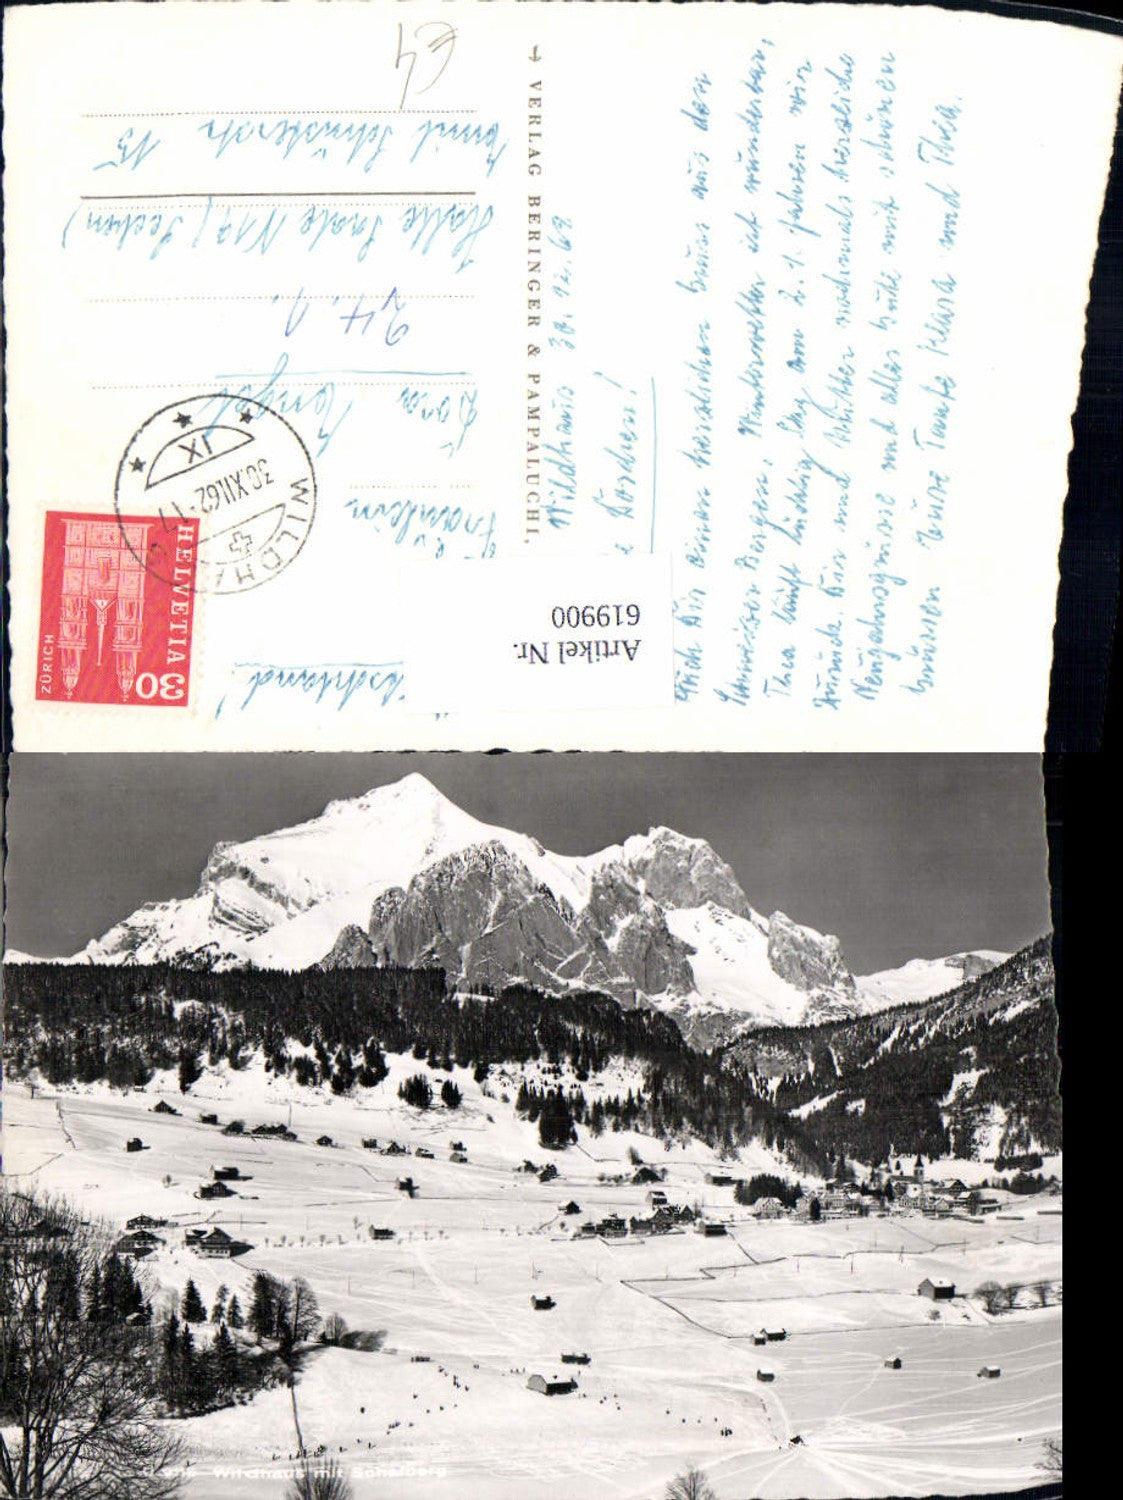 €4
Emil Schusterstr 15
Halle Saale N19 (
24. 1.
Dora Engel
Fräulein
schland!
VERLAG BERINGER & PAMPALUCHI,
Wildhaus 30. 12. 62
Dorchen!
Dir einen herzlichen Gruss aus den
Schweizer Bergen. Winterwetter ist wunderbar,
Thea läuft tüchtig am 2. 1. fahren wir
zurück. Dir und Mutter nochmals herzliche
Neujahrsgrüsse und alles Gute mit schönen
Grüssen Eure Tante Klara und Thea.
Artikel Nr.
619900
WILDHA
30.XII.62-17
IX
HELVETIA
30
ZÜRICH
Wildhaus mit Schafberg